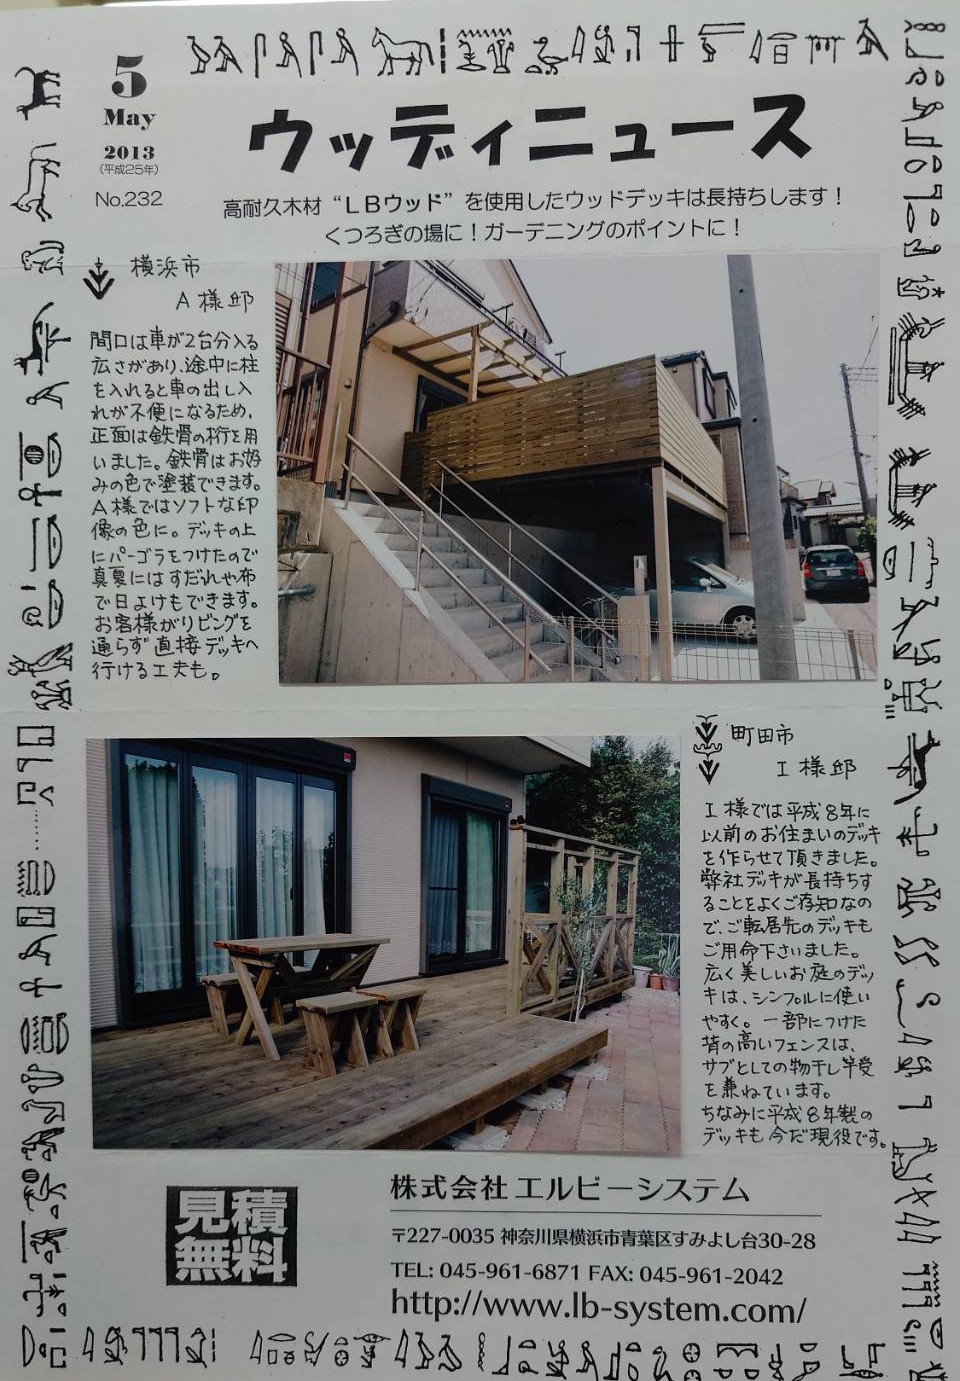 5
May
2013
(平成25年)
No.232
ウッディニュース
高耐久木材 “LBウッド” を使用したウッドデッキは長持ちします！
くつろぎの場に！ガーデニングのポイントに！
横浜市
A様邸
間口は車が2台分入る
広さがあり、途中に柱
を入れると車の出し入
れが不便になるため、
正面は鉄骨の桁を用
いました。鉄骨はお好
みの色で塗装できます。
A様ではソフトな印
像の色に。デッキの上
にパーゴラをつけたので
真夏にはすだれや布
で日よけもできます。
お客様がリビングを
通らず直接デッキへ
行ける工夫も。
町田市
I様邸
I様では平成8年に
以前のお住まいのデッキ
を作らせて頂きました。
弊社デッキが長持ちす
ることをよくご存知なの
で、ご転居先のデッキも
ご用命下さいました。
広く美しいお庭のデッ
キは、シンプルに使い
やすく。一部につけた
背の高いフェンスは、
サブとしての物干し竿受
を兼ねています。
ちなみに平成8年製の
デッキも今だ現役です。
見積
無料
株式会社エルビーシステム
〒227-0035 神奈川県横浜市青葉区すみよし台30-28
TEL: 045-961-6871 FAX: 045-961-2042
http://www.lb-system.com/